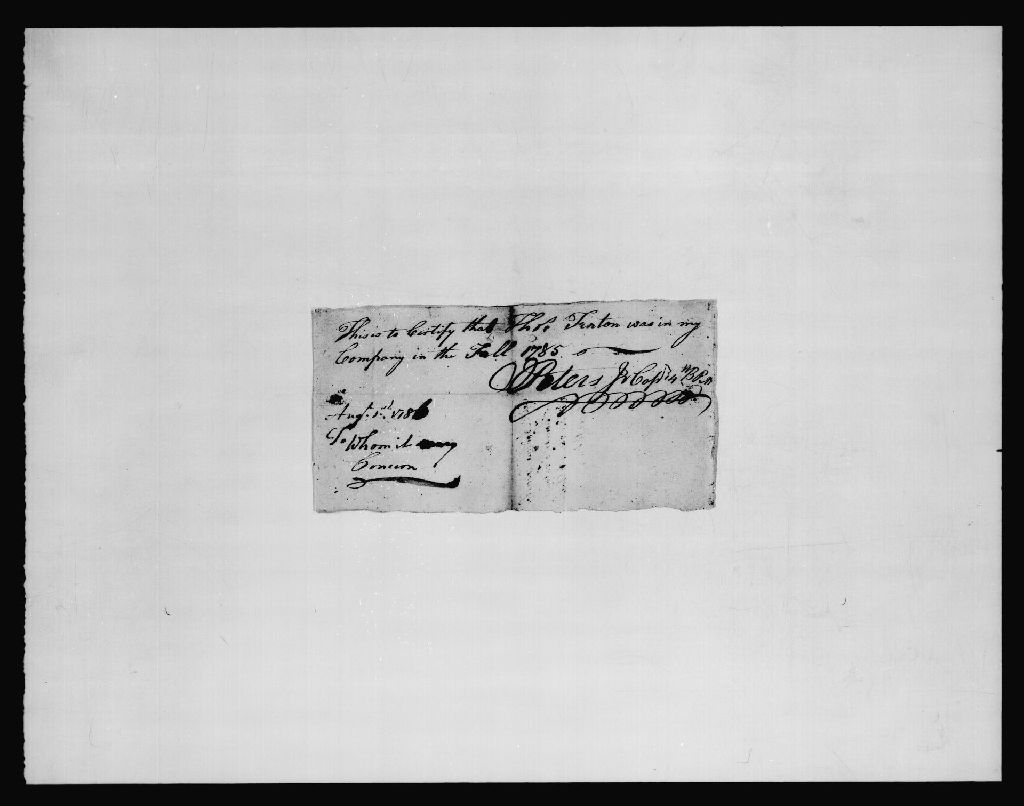 This is to Certify that Thos. Traton was in my
Company in the Fall 1785.
Peters Jr Capt. 4th B P
Augt. 1st. 1786
To Whom it may
Concern